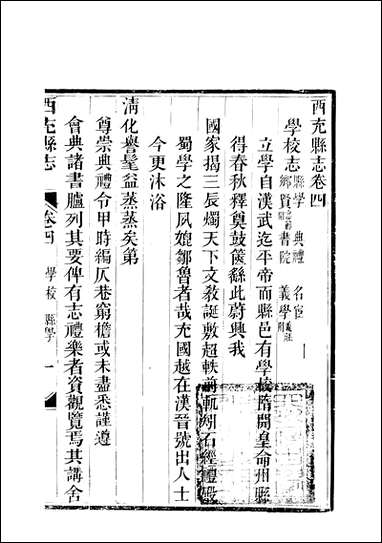 西充縣志卷四
學校志 縣學 典禮 名宦
鄉賢 書院 義學
立學自漢武迄平帝而縣邑有學校隋開皇命州縣
得春秋釋奠鼓篋繇此蔚興我
國家揭三辰燭天下文敎誕敷超軼前軌矧石經禮殿
蜀學之隆夙媲鄒魯者哉充國越在漢晉號出人士
今更沐浴
淸化譽髦益蒸蒸矣第
尊崇典禮令甲時編仄巷窮檐或未盡悉謹遵
會典諸書臚列其要俾有志禮樂者資觀覽焉其講舍
西充縣志
卷四 學校 縣學 一